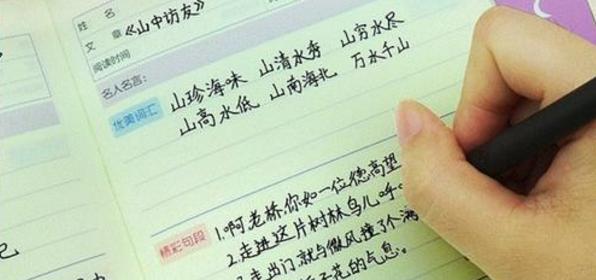 姓名
文章 《山中访友》
阅读时间
名人名言:
优美词汇 山珍海味 山清水秀 山穷水尽
山高水低 山南海北 万水千山
精彩句段 1.啊老桥你如一位德高望
2.走进这片树林鸟儿呼
走出门就与微风撞了个满
花的气息。
记